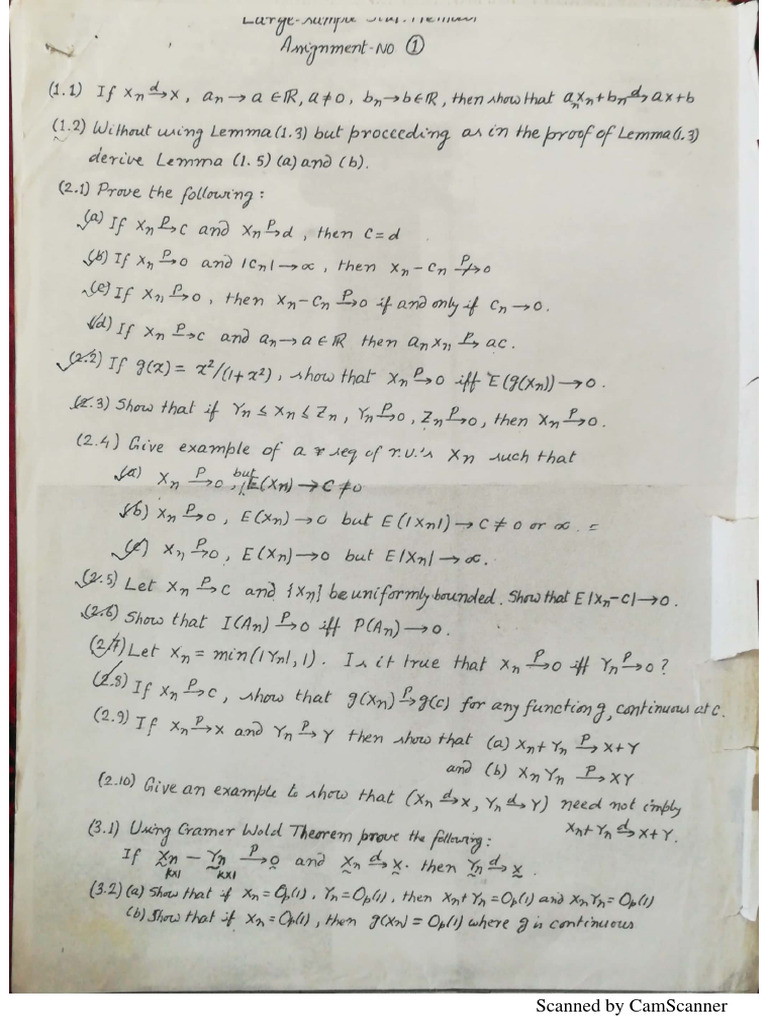 Large-sample Stat. Methods
Assignment-No ①
(1.1) If Xn →d X, an → a ∈ ℝ, a ≠ 0, bn → b ∈ ℝ, then show that anXn + bn →d aX + b
(1.2) Without using Lemma (1.3) but proceeding as in the proof of Lemma (1.3)
derive Lemma (1.5) (a) and (b).
(2.1) Prove the following:
(a) If Xn →P c and Xn →P d, then c = d
(b) If Xn →P 0 and |cn| → ∞, then Xn - cn ↛P 0
(c) If Xn →P 0, then Xn - cn →P 0 if and only if cn → 0.
(d) If Xn →P c and an → a ∈ ℝ then anXn →P ac.
(2.2) If g(x) = x²/(1+x²), show that Xn →P 0 iff E(g(Xn)) → 0.
(2.3) Show that if Yn ≤ Xn ≤ Zn, Yn →P 0, Zn →P 0, then Xn →P 0.
(2.4) Give example of a seq of r.v.'s Xn such that
(a) Xn →P 0, but E(Xn) → c ≠ 0
(b) Xn →P 0, E(Xn) → 0 but E(|Xn|) → c ≠ 0 or ∞. =
(c) Xn →P 0, E(Xn) → 0 but E|Xn| → ∞.
(2.5) Let Xn →P c and {Xn} be uniformly bounded. Show that E|Xn-c| → 0.
(2.6) Show that I(An) →P 0 iff P(An) → 0.
(2.7) Let Xn = min(|Yn|, 1). Is it true that Xn →P 0 iff Yn →P 0?
(2.8) If Xn →P c, show that g(Xn) →P g(c) for any function g, continuous at c.
(2.9) If Xn →P X and Yn →P Y then show that (a) Xn + Yn →P X+Y
and (b) XnYn →P XY
(2.10) Give an example to show that (Xn →d X, Yn →d Y) need not imply
Xn+Yn →d X+Y.
(3.1) Using Cramer Wold Theorem prove the following:
If Xn - Yn →P 0 and Xn →d X. then Yn →d X.
kx1 kx1
(3.2) (a) Show that if Xn = Op(1), Yn = Op(1), then Xn+Yn = Op(1) and XnYn = Op(1)
(b) Show that if Xn = Op(1), then g(Xn) = Op(1) where g is continuous
Scanned by CamScanner